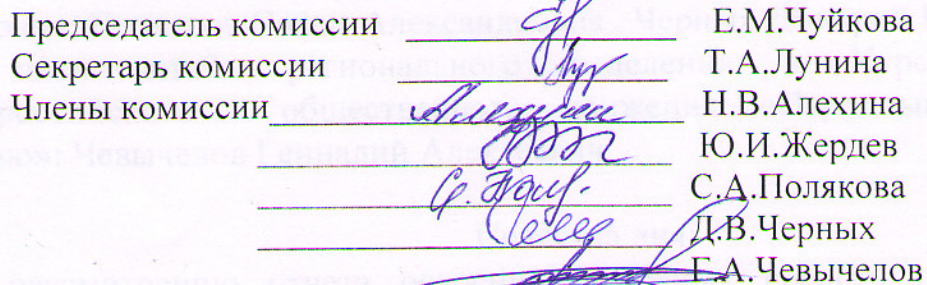 Председатель комиссии Е.М.Чуйкова
Секретарь комиссии Т.А.Лунина
Члены комиссии Н.В.Алехина
Ю.И.Жердев
С.А.Полякова
Д.В.Черных
Г.А.Чевычелов